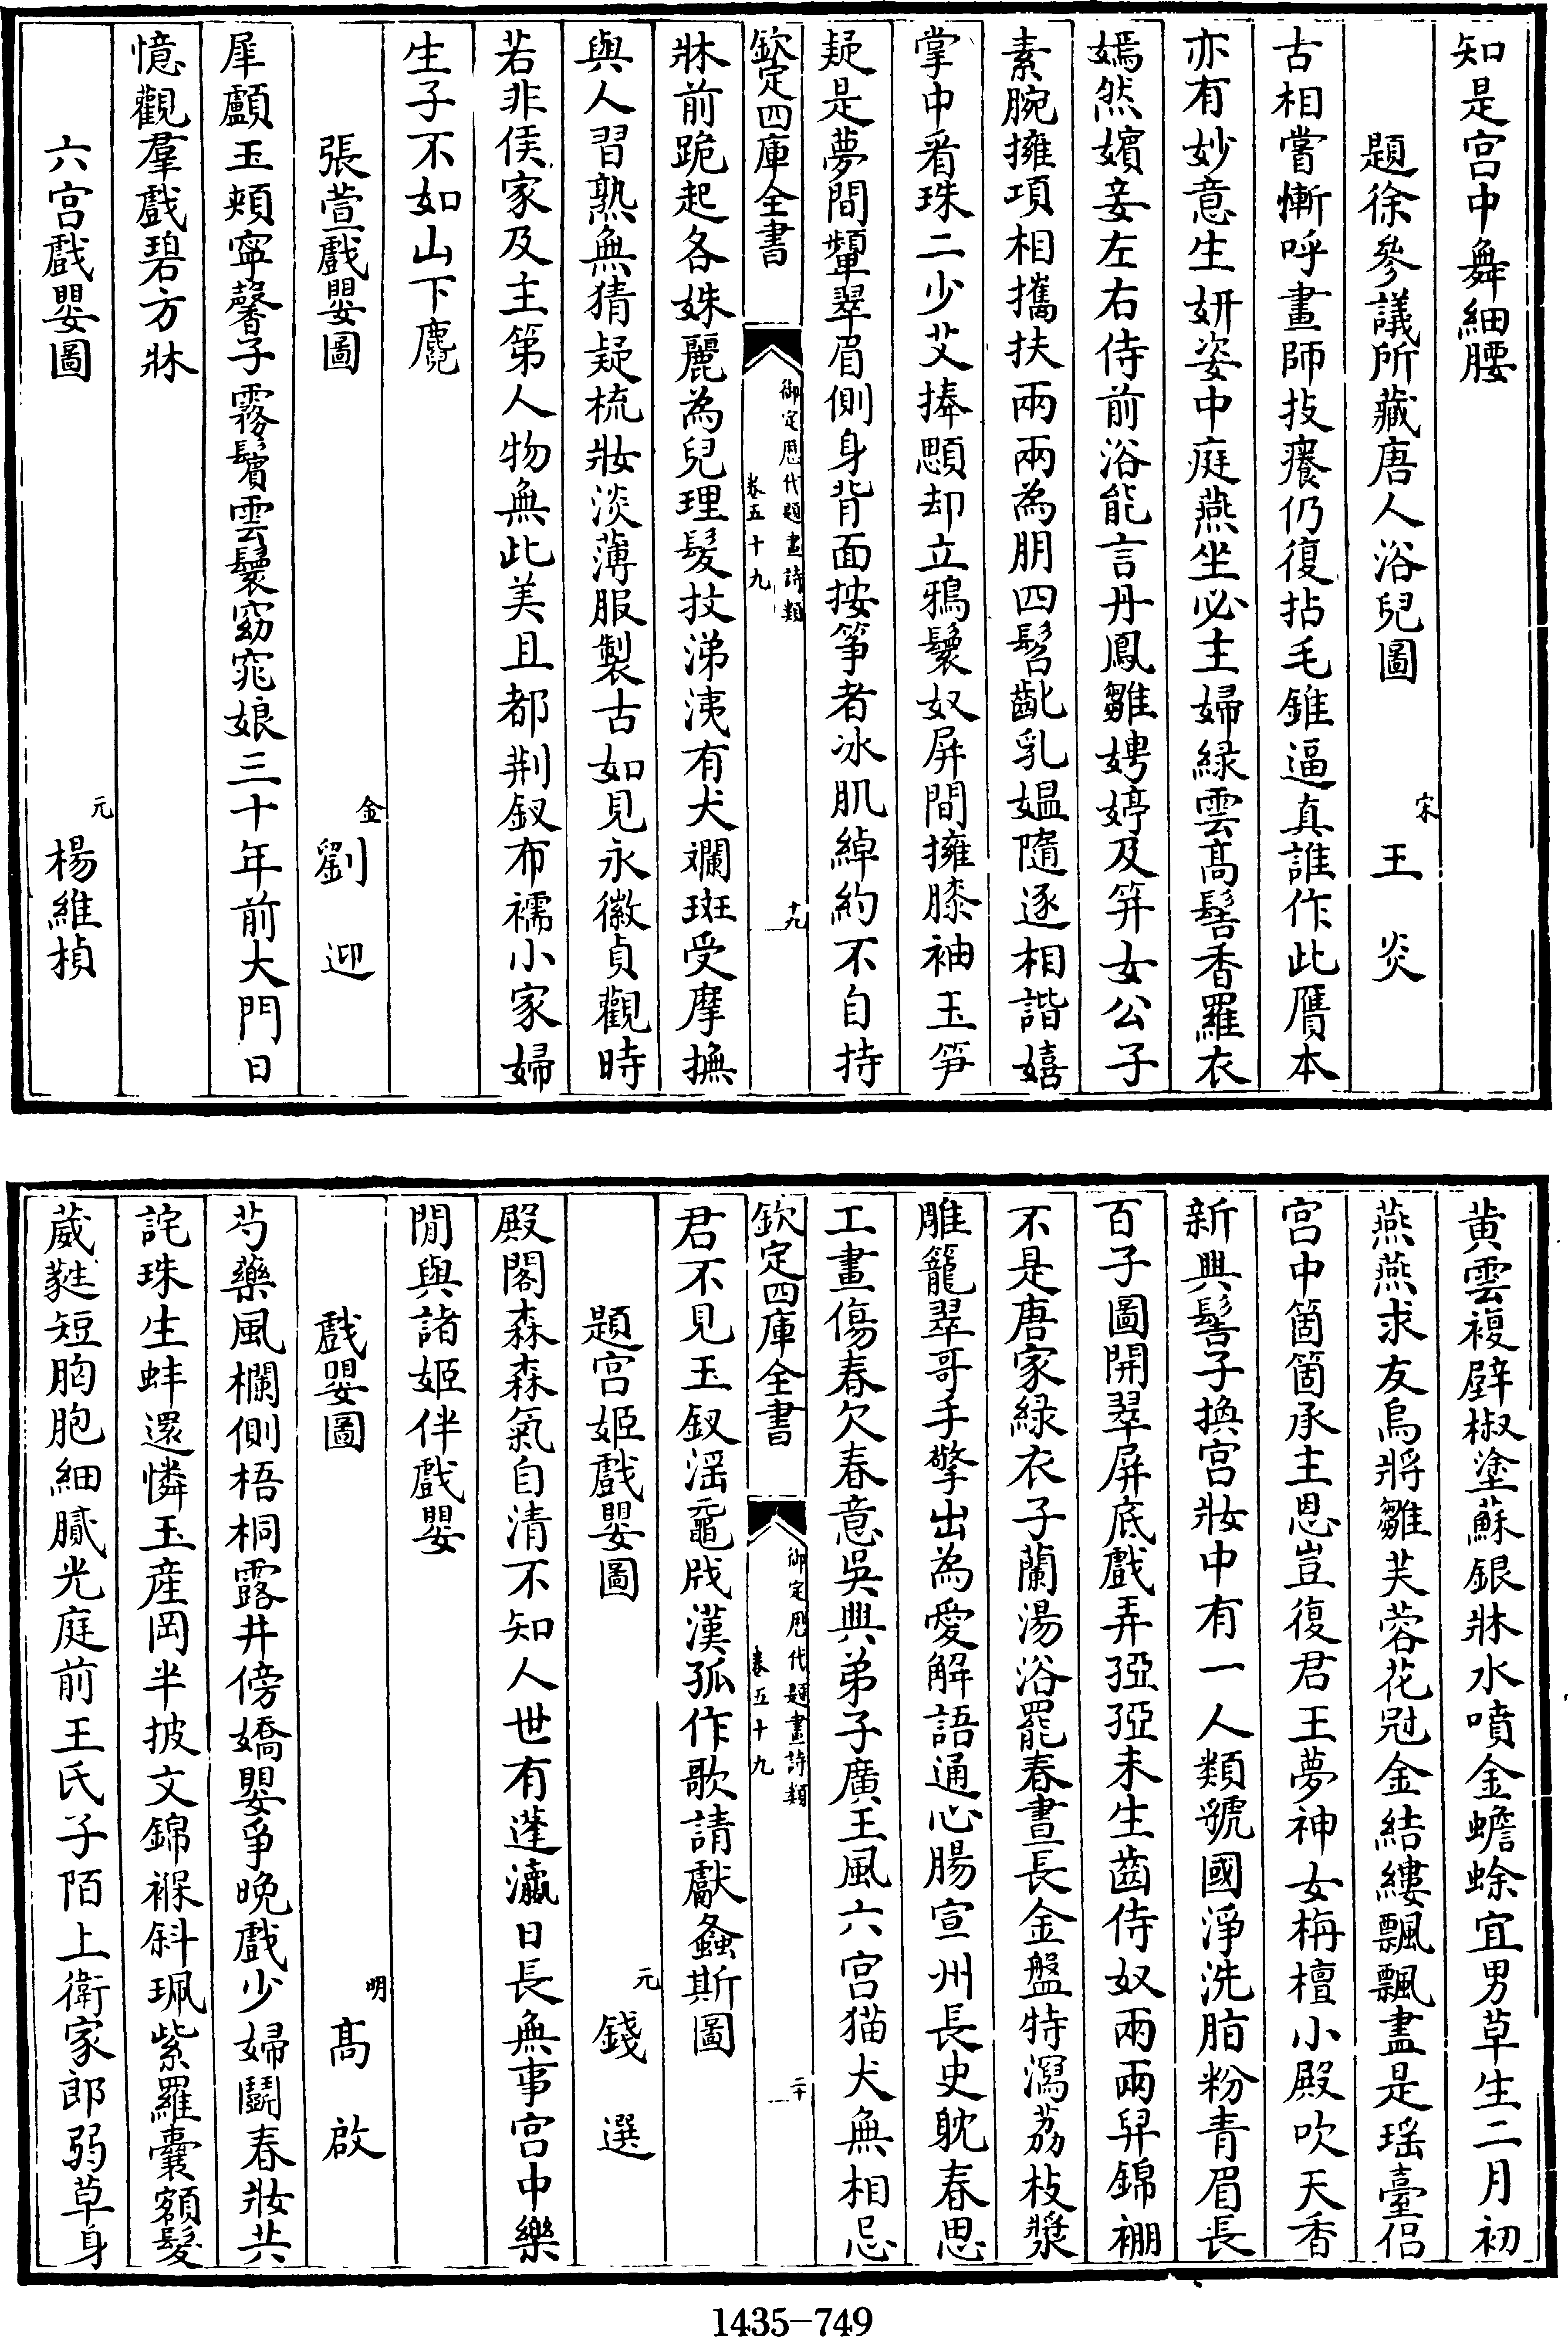 知是宫中舞細腰
題徐參議所藏唐人浴兒圖
宋
王炎
古相嘗慚呼畫師技癢仍復拈毛錐逼真誰作此贗本
亦有妙意生妍姿中庭燕坐必主婦緑雲髙髻香羅衣
嫣然嬪妾左右侍前浴能言丹鳳雛娉婷及笄女公子
素腕擁項相攜扶兩兩為朋四髫齔乳媪隨逐相諧嬉
掌中看珠二少艾捧顋却立鴉鬟奴屏間擁膝袖玉笋
疑是夢間顰翠眉側身背面按箏者冰肌綽約不自持
欽定四庫全書
御定歴代題畫詩類
卷五十九
十九
牀前跪起各姝麗為兒理髮抆涕洟有犬斕斑受摩撫
與人習熟無猜疑梳妝淡薄服製古如見永徽貞觀時
若非侯家及主第人物無此美且都荆釵布襦小家婦
生子不如山下麑
張萱戲嬰圖
金
劉迎
犀顱玉頰寧馨子霧鬢雲鬟窈窕娘三十年前大門日
憶觀羣戲碧方牀
六宫戲嬰圖
元
楊維楨
黄雲複壁椒塗蘇銀牀水噴金蟾蜍宜男草生二月初
燕燕求友烏將雛芙蓉花冠金結縷飄飄盡是瑶臺侣
宫中箇箇承主恩豈復君王夢神女栴檀小殿吹天香
新興髻子換宫妝中有一人類虢國淨洗脂粉青眉長
百子圖開翠屏底戲弄孲孲未生齒侍奴兩兩舁錦棚
不是唐家緑衣子蘭湯浴罷春晝長金盤特瀉荔枝漿
雕籠翠哥手擎出為愛解語通心腸宣州長史躭春思
工畫傷春欠春意吳興弟子廣王風六宫猫犬無相忌
欽定四庫全書
御定歴代題畫詩類
卷五十九
二十
君不見玉釵滛黿戕漢孤作歌請獻螽斯圖
題宫姬戲嬰圖
元
錢選
殿閣森森氣自清不知人世有蓬瀛日長無事宫中樂
閒與諸姬伴戲嬰
戲嬰圖
明
髙啟
芍藥風欄側梧桐露井傍嬌嬰爭晚戲少婦鬭春妝共
詫珠生蚌還憐玉産岡半披文錦褓斜珮紫羅囊額髮
葳蕤短胸胞細膩光庭前王氏子陌上衛家郎弱草身
1435-749